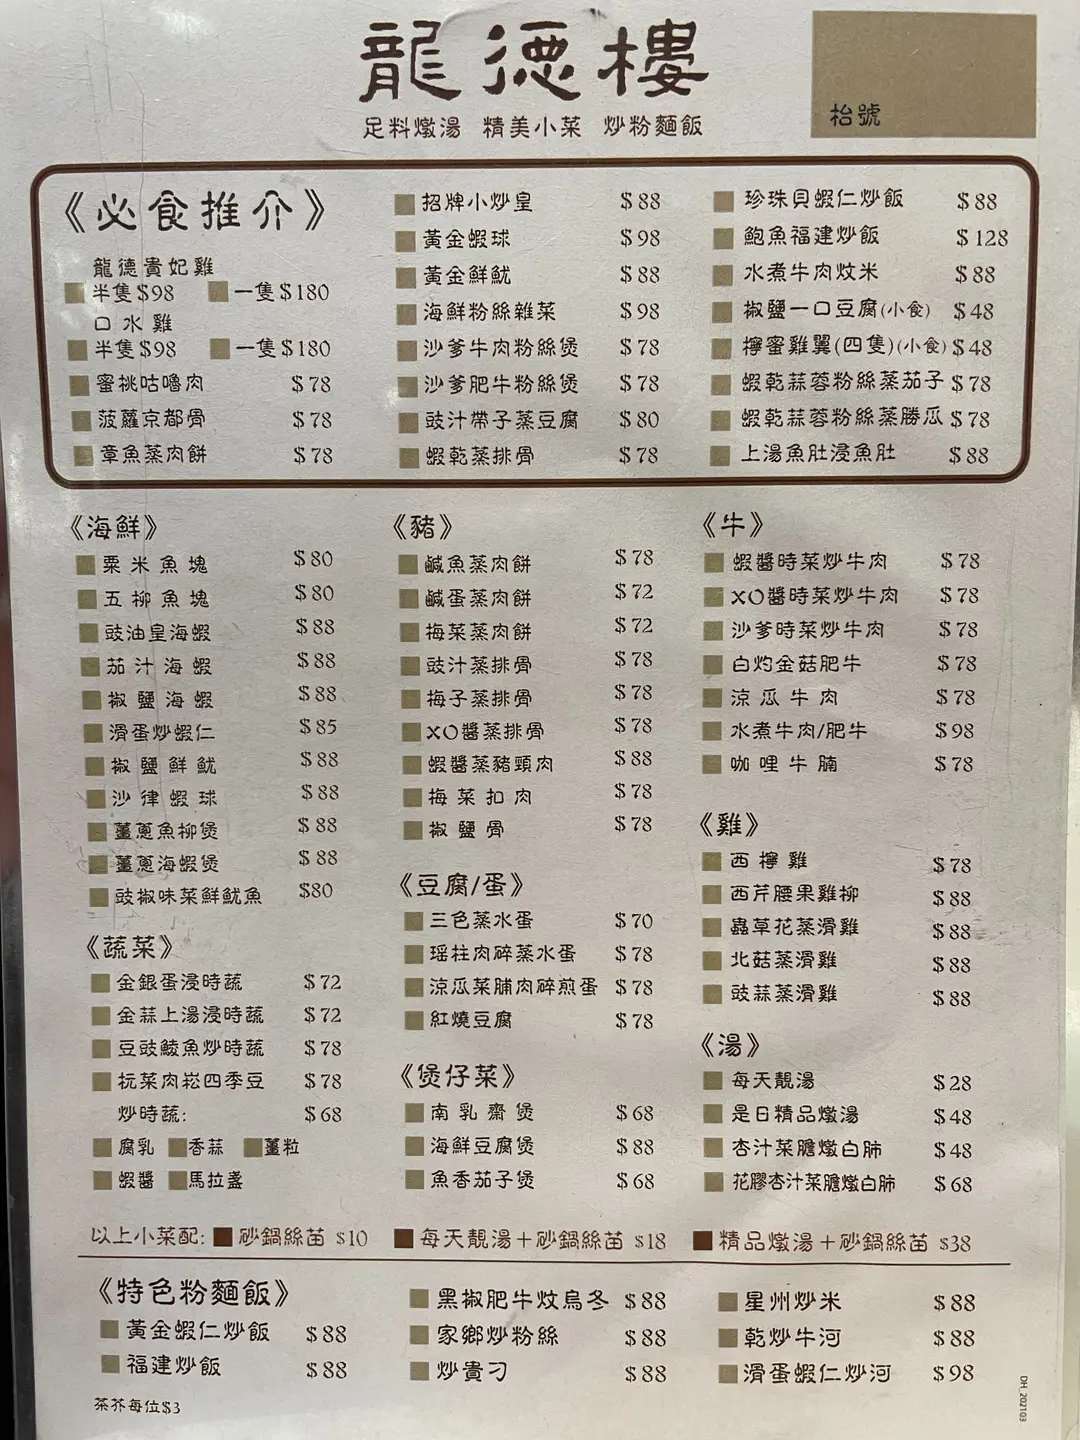 龍德樓
足料燉湯 精美小菜 炒粉麵飯
枱號
《必食推介》
龍德貴妃雞
半隻$98 一隻$180
口水雞
半隻$98 一隻$180
蜜桃咕嚕肉 $78
菠蘿京都骨 $78
章魚蒸肉餅 $78
招牌小炒皇 $88
黃金蝦球 $98
黃金鮮魷 $88
海鮮粉絲雜菜 $98
沙爹牛肉粉絲煲 $78
沙爹肥牛粉絲煲 $78
豉汁帶子蒸豆腐 $80
蝦乾蒸排骨 $78
珍珠貝蝦仁炒飯 $88
鮑魚福建炒飯 $128
水煮牛肉炆米 $88
椒鹽一口豆腐(小食) $48
檸蜜雞翼(四隻)(小食) $48
蝦乾蒜蓉粉絲蒸茄子 $78
蝦乾蒜蓉粉絲蒸勝瓜 $78
上湯魚肚浸魚肚 $88
《海鮮》
粟米魚塊 $80
五柳魚塊 $80
豉油皇海蝦 $88
茄汁海蝦 $88
椒鹽海蝦 $88
滑蛋炒蝦仁 $85
椒鹽鮮魷 $88
沙律蝦球 $88
薑蔥魚柳煲 $88
薑蔥海蝦煲 $88
豉椒味菜鮮魷魚 $80
《蔬菜》
金銀蛋浸時蔬 $72
金蒜上湯浸時蔬 $72
豆豉鯪魚炒時蔬 $78
杬菜肉崧四季豆 $78
炒時蔬: $68
腐乳 香蒜 薑粒
蝦醬 馬拉盞
《豬》
鹹魚蒸肉餅 $78
鹹蛋蒸肉餅 $72
梅菜蒸肉餅 $72
豉汁蒸排骨 $78
梅子蒸排骨 $78
XO醬蒸排骨 $78
蝦醬蒸豬頸肉 $88
梅菜扣肉 $78
椒鹽骨 $78
《豆腐/蛋》
三色蒸水蛋 $70
瑶柱肉碎蒸水蛋 $78
涼瓜菜脯肉碎煎蛋 $78
紅燒豆腐 $78
《煲仔菜》
南乳齋煲 $68
海鮮豆腐煲 $88
魚香茄子煲 $68
《牛》
蝦醬時菜炒牛肉 $78
XO醬時菜炒牛肉 $78
沙爹時菜炒牛肉 $78
白灼金菇肥牛 $78
涼瓜牛肉 $78
水煮牛肉/肥牛 $98
咖哩牛腩 $78
《雞》
西檸雞 $78
西芹腰果雞柳 $88
蟲草花蒸滑雞 $88
北菇蒸滑雞 $88
豉蒜蒸滑雞 $88
《湯》
每天靚湯 $28
是日精品燉湯 $48
杏汁菜膽燉白肺 $48
花膠杏汁菜膽燉白肺 $68
以上小菜配: 砂鍋絲苗 $10 每天靚湯+砂鍋絲苗 $18 精品燉湯+砂鍋絲苗 $38
《特色粉麵飯》
黃金蝦仁炒飯 $88
福建炒飯 $88
黑椒肥牛炆烏冬 $88
家鄉炒粉絲 $88
炒貴刁 $88
星州炒米 $88
乾炒牛河 $88
滑蛋蝦仁炒河 $98
茶芥每位$3
DH_202103